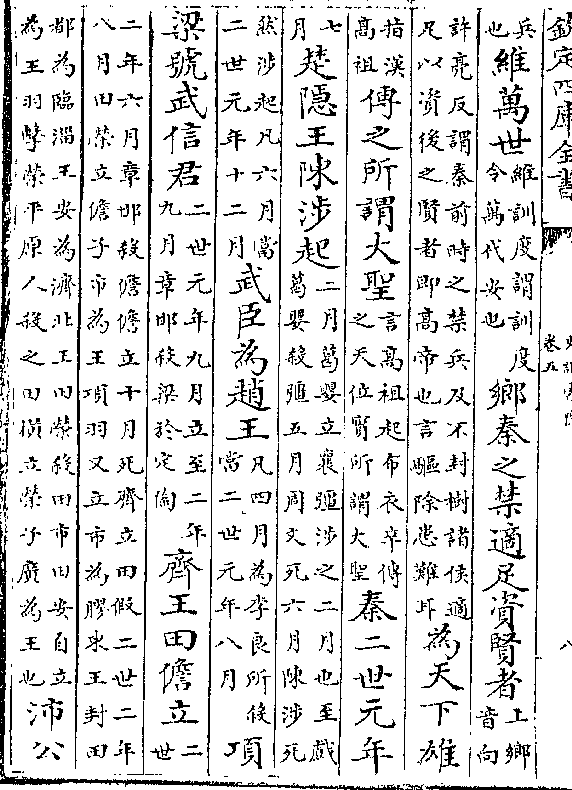 欽定四庫全書 史記索隱 卷五 八
兵也維萬世維訓度謂訓度令萬代安也鄉秦之禁適足資賢者上鄉音向
許亮反謂秦前時之禁兵及不封樹諸侯適足以資後之賢者即高帝也言驅除患難耳為天下雄
指漢高祖傳之所謂大聖言高祖起布衣卒傳之天位實所謂大聖秦二世元年
七月楚隱王陳涉起二月葛嬰立襄彊涉之二月也至戲葛嬰殺彊五月周文死六月陳涉死
然涉起凡六月當二世元年十二月武臣為趙王凡四月為李良所殺當二世元年八月項
梁號武信君二世元年九月立至二年九月章邯殺梁於定陶齊王田儋立二世
二年六月章邯殺儋儋立十月死齊立田假二世二年八月田榮立儋子市為王項羽又立市為膠東王封田
都為臨淄王安為濟北王田榮殺田市田安自立為王羽擊榮平原人殺之田橫立榮子廣為王也沛公